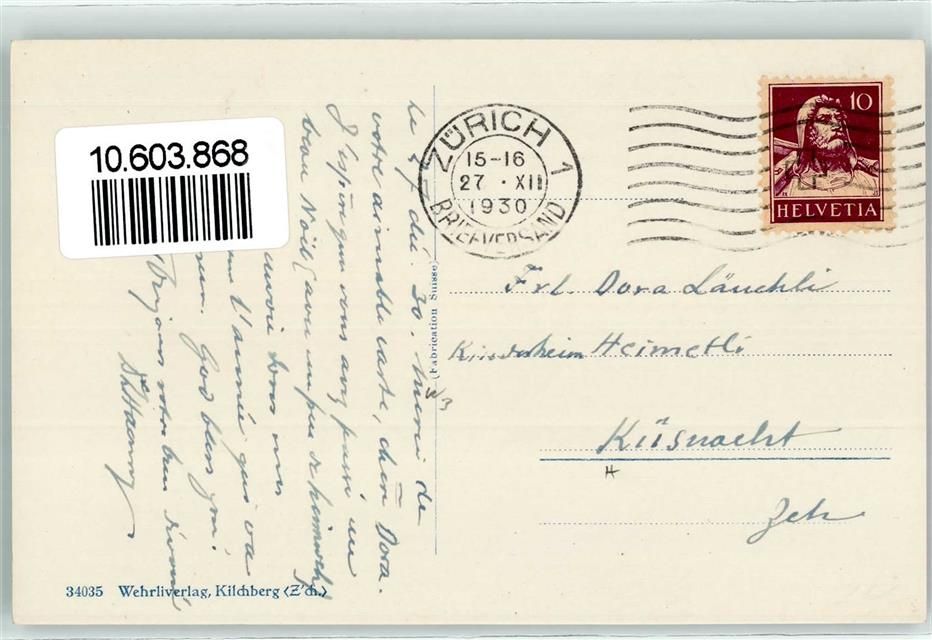 10.603.868
ZÜRICH 1
15-16
27 . XII
1930
BRIEFVERSAND
10
HELVETIA
Frl. Dora Läuchli
Kinderheim Heimetli
Küsnacht
Zch
(Fabrication Suisse)
le 27 du 30. Merci de
votre aimable carte, chère Dora.
J'espère que vous avez passé un
beau Noël avec un peu de
vous
l'année qui va
God bless you!
Toujours votre bien
34035 Wehrliverlag, Kilchberg (Z'ch.)